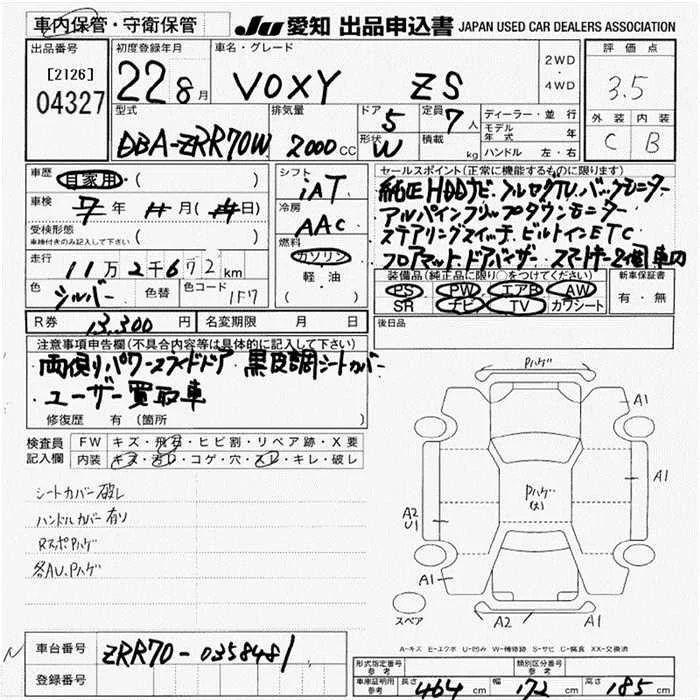 車内保管・守衛保管 JU 愛知 出品申込書 JAPAN USED CAR DEALERS ASSOCIATION
出品番号 初度登録年月 車名・グレード 2WD ・ 4WD 評価点
[2126] 04327 22 8月 VOXY ZS 3.5
型式 排気量 ドア 5 定員 7人 ディーラー・並行 外装 内装
DBA-ZRR70W 2000 CC 形状 W 積載 kg モデル年式 年 C B
ハンドル 左・右
車歴 自家用・( ) シフト iAT セールスポイント(正常に機能するものに限ります)
車検 年 月( 日) 冷房 AAC 純正HDDナビ フルセグTV バックモニター
受検形態 車検付きのみ記入して下さい ( ) アルパインフリップダウンモニター
走行 11万2千672km 燃料 ガソリン・軽・油 ( ) ステアリングスイッチ ビルトインETC
フロアマット ドアバイザー スマートキー2個車内
色 シルバー 色替 色コード 1F7 装備品(純正品に限り○をつけてください) 新車保証書
PS PW エアB AW 有・無
SR ナビ TV カワシート
R券 13,300円 名変期限 月 日 後日品
注意事項申告欄(不具合内容等は具体的に記入して下さい)
両側パワースライドドア 黒皮調シートカバー
ユーザー買取車
修復歴 有(箇所 )
検査員記入欄 FW キズ・飛石・ヒビ割・リペア跡・X要
内装 キズ・汚レ・コゲ・穴・スレ・キレ・破レ
シートカバー破レ
ハンドルカバー有り
RスポPハゲ
各AU.Pハゲ
Pハゲ
A1
A1
Pハゲ(大)
A2 U1
A1
A2 A1
スペア
A-キズ E-エクボ U-凹み W-補修跡 S-サビ C-腐食 XX-交換済
車台番号 ZRR70-0358481
登録番号
形式指定番号 参考 類別区分番号 参考
車庫証明用 参考 長さ 464cm 幅 172cm 高さ 185cm